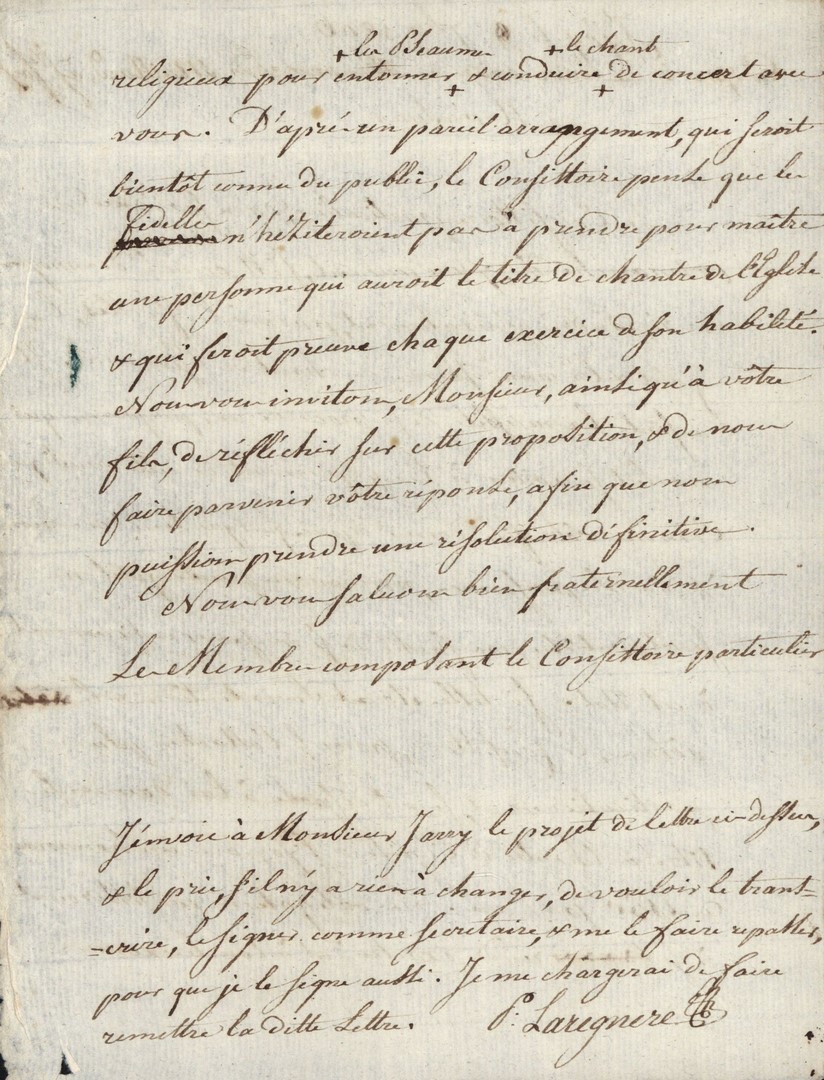 + les Pseaumes + le chant
religieux pour entonner + & conduire + de concert avec
vous. D'après un pareil arrangement, qui seroit
bientôt connu du public, le Consistoire pense que les
fidelles
n'héziteroient pas à prendre pour maître
une personne qui auroit le titre de chantre de l'Eglise
& qui feroit preuve chaque exercice de son habileté.
Nous vous invitons, Monsieur, ainsi qu'à vôtre
fils, de réflêchir sur cette proposition, & de nous
faire parvenir vôtre réponse, afin que nous
puissions prendre une résolution définitive.
Nous vous saluons bien fraternellement
Les Membres composant le Consistoire particulier
J'envoie à Monsieur Jarry le projet de lettre ci-dessus,
& le prie, s'il n'y a rien à changer, de vouloir le trans=
=crire, le signer comme secretaire, & me le faire repasser,
pour que je le signe aussi. Je me chargerai de faire
remettre la ditte Lettre. P. Laregnere